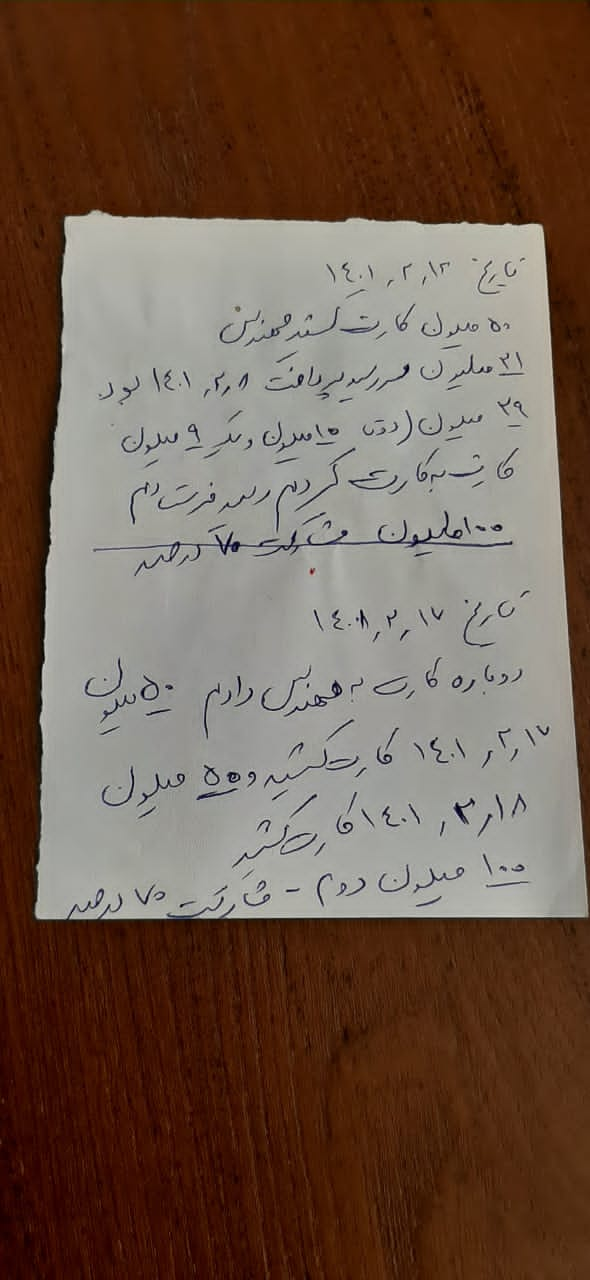 تاریخ ۱۴۰۱٫۲٫۱۲
۵۰ میلیون کارت کشید مهندس
۲۱ میلیون سررسید پرداخت ۱۴۰۱٫۲٫۸ بود
۲۹ میلیون (دوتا ۱۰ میلیون و یک ۹ میلیون
کارت به کارت کردم رسید فرستادم
۱۰۰ میلیون مشارکت ۷۰ درصد
تاریخ ۱۴۰۱٫۲٫۱۷
دوباره کارت به مهندس دادم ۵۰ میلیون
۱۴۰۱٫۲٫۱۷ کارت کشید و ۵۰ میلیون
۱۴۰۱٫۲٫۱۸ کارت کشید
۱۰۰ میلیون دوم - مشارکت ۷۰ درصد